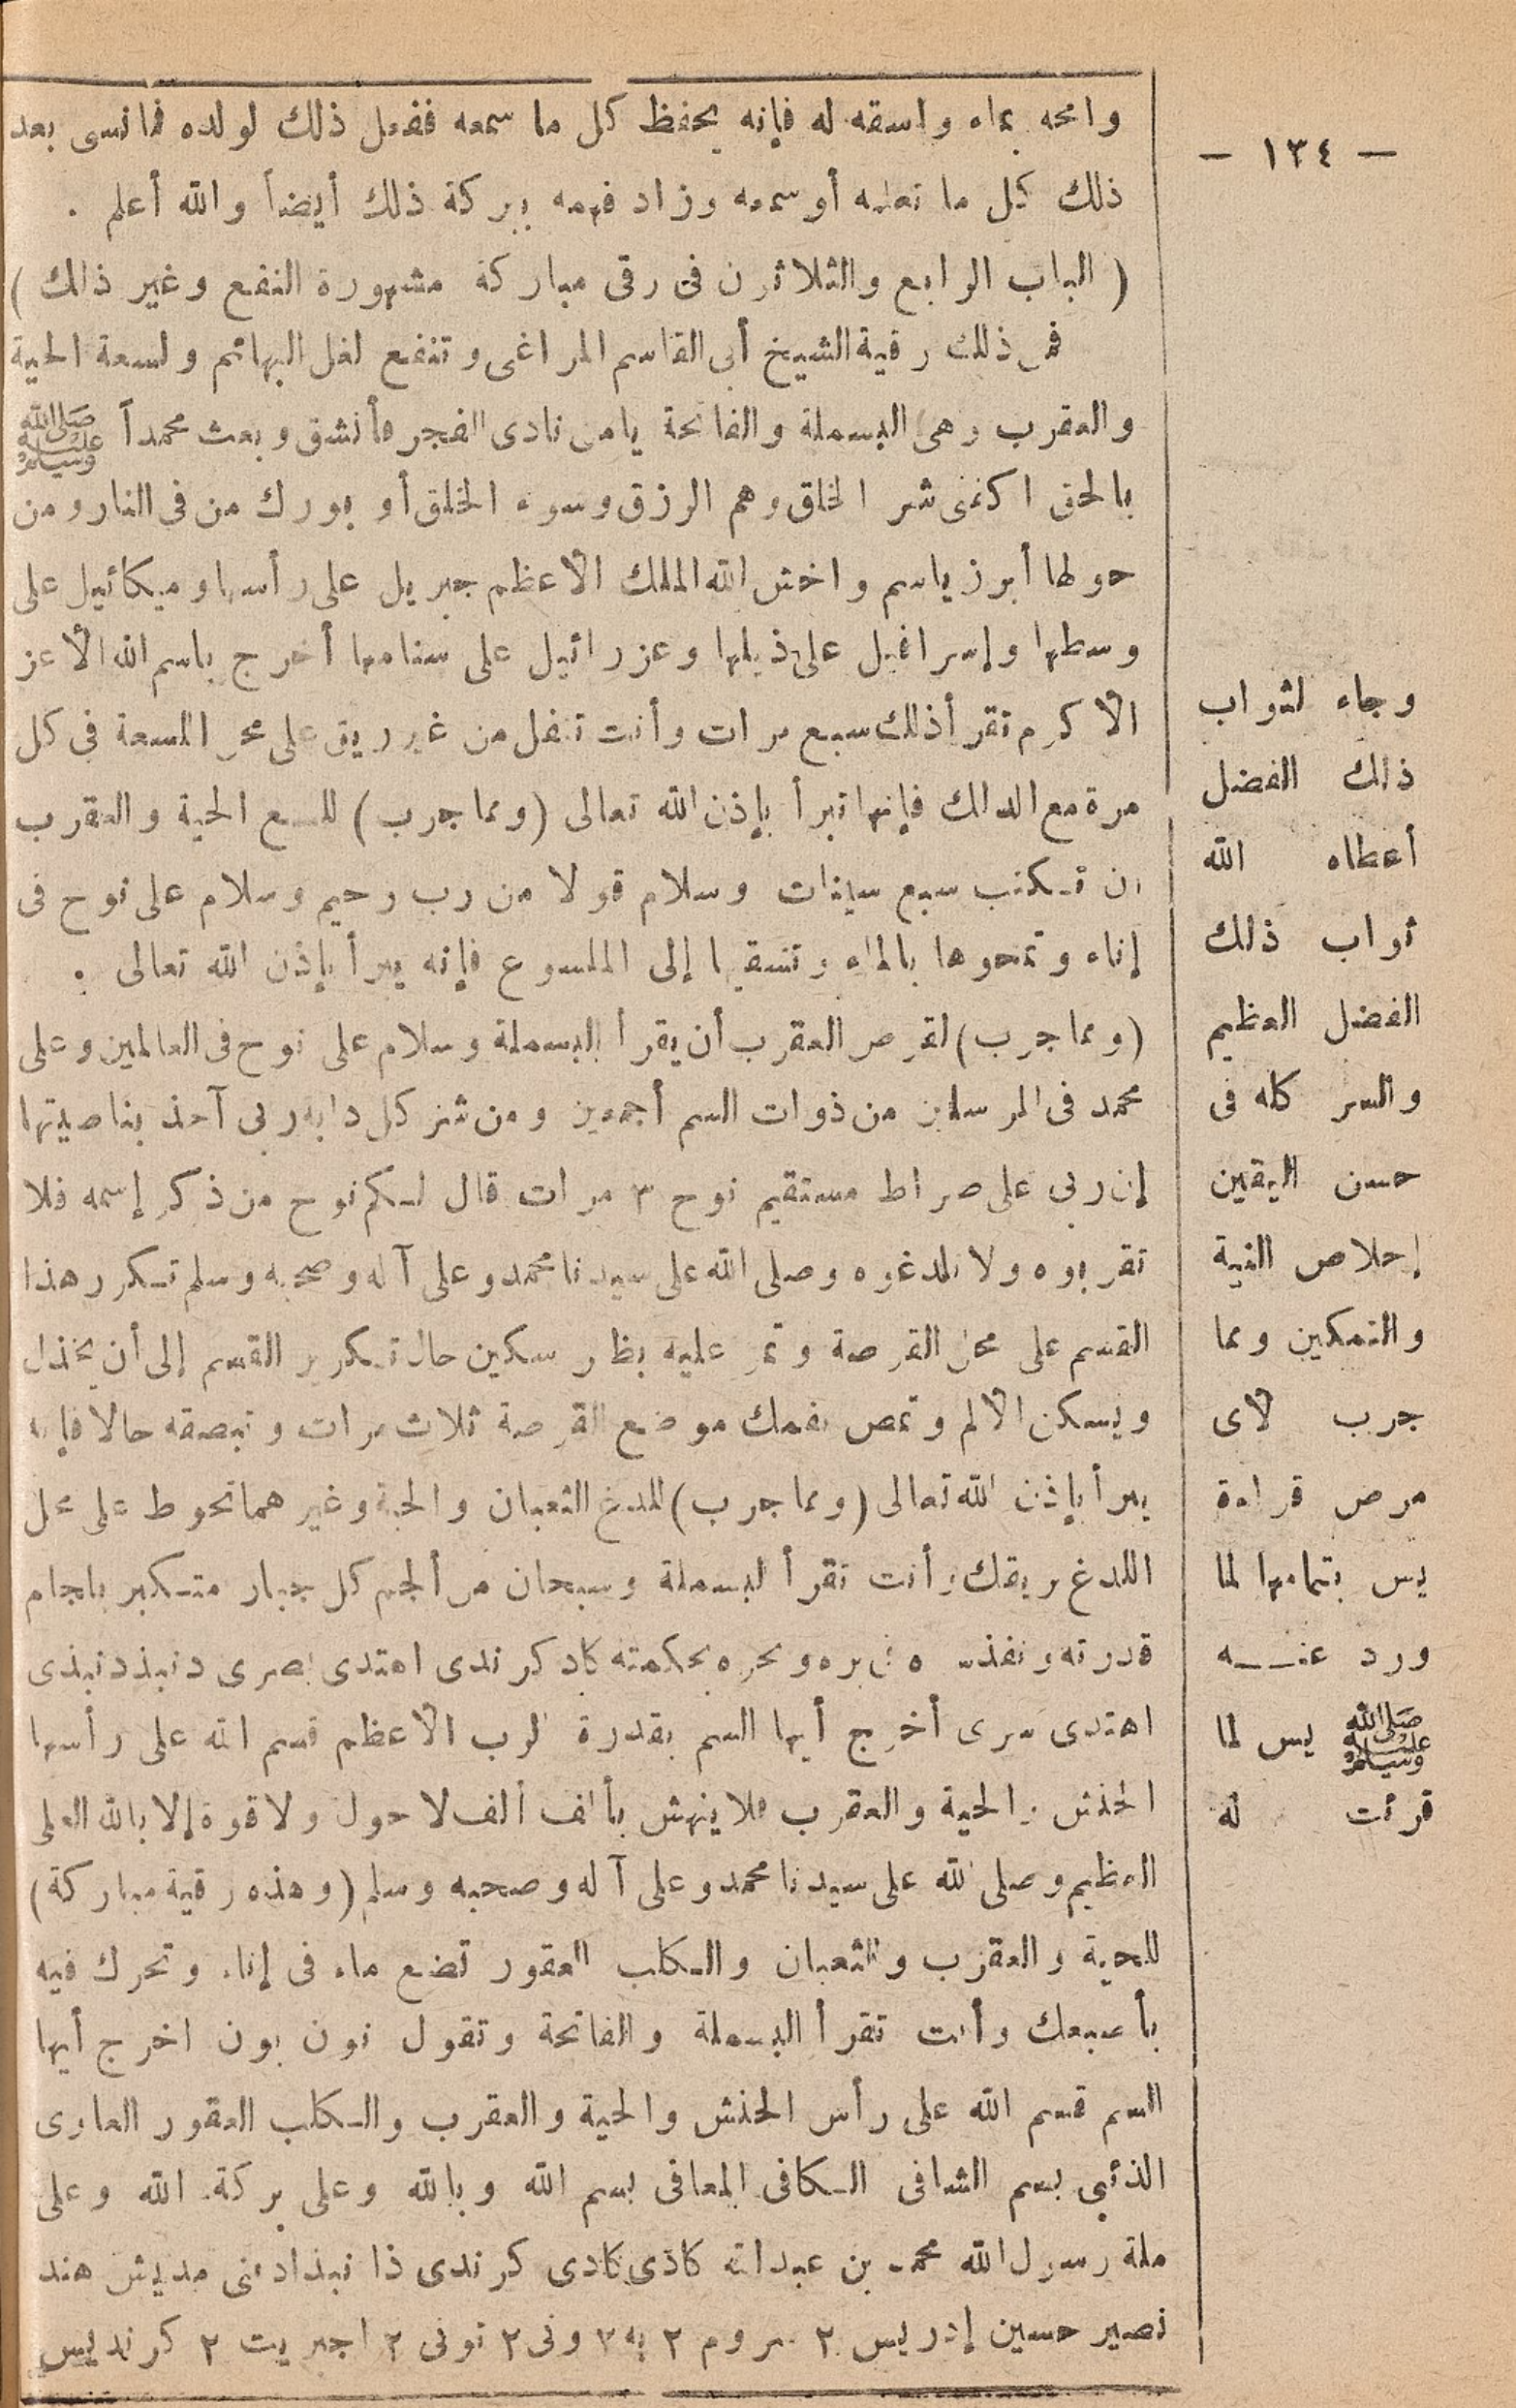 — ١٣٤ —
وامحه بماء واسقه له فإنه يحفظ كل ما سمعه ففعل ذلك لولده فما نسى بعد
ذلك كل ما تعلمه أو سمعه وزاد فهمه ببركة ذلك أيضاً والله أعلم .
( الباب الرابع والثلاثون فى رقى مباركة مشهورة النفع وغير ذلك )
فمن ذلك رقية الشيخ أبى القاسم المراغى وتنفع لغل البهائم ولسعة الحية
والعقرب وهى البسملة والفاتحة يا من نادى الفجر فأنشق وبعث محمداً ﷺ
بالحق اكفنى شر الخلق وهم الرزق وسوء الخلق أو بورك من فى النار ومن
حولها أبرز ياسم واخش الله الملك الأعظم جبريل على رأسها وميكائيل على
وسطها وإسرافيل على ذيلها وعزرائيل على سنامها أخرج باسم الله الأعز
الأكرم تقرأ ذلك سبع مرات وأنت تتفل من غير ريق على محر اللسعة فى كل
مرة مع الدلك فإنها تبرأ بإذن الله تعالى (ومما جرب) للسع الحية والعقرب
ان تكتب سبع سينات وسلام قولا من رب رحيم وسلام على نوح فى
إناء وتمحوها بالماء وتسقيها إلى الملسوع فإنه يبرأ بإذن الله تعالى .
(ومما جرب) لقرص العقرب أن يقرأ البسملة وسلام على نوح فى العالمين وعلى
محمد فى المرسلين من ذوات السم أجمعين ومن شر كل دابة ربى آخذ بناصيتها
إن ربى على صراط مستقيم نوح ٣ مرات قال لكم نوح من ذكر إسمه فلا
تقربوه ولا تلدغوه وصلى الله على سيدنا محمد وعلى آله وصحبه وسلم تكرر هذا
القسم على محل القرصة وتمر عليه بظهر سكين حال تكرير القسم إلى أن يخذل
ويسكن الألم وتمص بفمك موضع القرصة ثلاث مرات وتبصقه حالا فإنه
يبرأ بإذن الله تعالى (ومما جرب) للدغ الثعبان والحية وغيرهما تحوط على محل
اللدغ بريقك وأنت تقرأ البسملة وسبحان من ألجم كل جبار متكبر بلجام
قدرته ونفذ بره وبحره بحكمته كاد كرندى اهتدى بصرى دنبذ دنبذى
اهتدى سرى أخرج أيها السم بقدرة الرب الأعظم قسم الله على رأسها
الحنش والحية والعقرب فلا ينهش بألف ألف لا حول ولا قوة إلا بالله العلى
العظيم وصلى الله على سيدنا محمد وعلى آله وصحبه وسلم (وهذه رقية مباركة)
للحية والعقرب والثعبان والكلب العقور تضع ماء فى إناء وتحرك فيه
بأصبعك وأنت تقرأ البسملة والفاتحة وتقول نون بون اخرج أيها
السم قسم الله على رأس الحنش والحية والعقرب والكلب العقور العاوى
الذئبى بسم الشافى الكافى المعافى بسم الله وبالله وعلى بركة الله وعلى
ملة رسول الله محمد بن عبدالله كاذى كادى كرندى ذا نبذاد بنى مديش هند
نصير حسين إدريس ٢ سروم ٢ به ٢ ونى ٢ تونى ٢ اجبريت ٢ كرنديس
وجاء لثواب
ذلك الفضل
أعطاه الله
ثواب ذلك
الفضل العظيم
والسر كله فى
حسن اليقين
إخلاص النية
والتمكين ومما
جرب لأى
مرض قراءة
يس بتمامها لما
ورد عنه
ﷺ يس لما
قرئت له